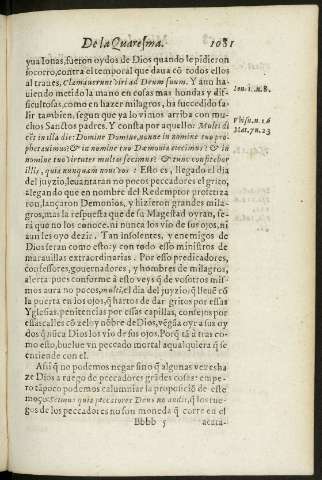 De la Quaresma. 1081
yua Ionas, fueron oydos de Dios quando le pidieron
socorro, contra el temporal que daua cõ todos ellos
al traues, Clamauerunt viri ad Deum suum. Y aun ha
uiendo metido la mano en cosas mas hondas y dif-
ficultosas, como en hazer milagros, ha succedido sa-
lir tambien, segun que ya lo vimos arriba con mu-
chos Sanctos padres. Y consta por aquello: Multi di
cẽt in illa die: Domine Domine, nonne in nomine tuo pro-
phetauimus? & in nomine tuo Dæmonia eiecimus? & in
nomine tuo virtutes multas fecimus? & tunc confitebor
illis, quia nunquam noui vos: Esto es, llegado el dia
del juyzio, leuantaran no pocos peccadores el grito,
alegando que en nombre del Redemptor profetiza
ron, lançaron Demonios, y hizieron grandes mila-
gros, mas la respuesta que de su Magestad oyran, se-
rá que no los conoce, ni nunca los vio de sus ojos, ni
aun les oyo dezir. Tan insolentes, y enemigos de
Dios seran como esto: y con todo esso ministros de
marauillas extraordinarias. Por esso predicadores,
confessores, gouernadores, y hombres de milagros,
alerta: pues conforme à esto veys q̃ de vosotros mis-
mos aura no pocos, el dia del juyzio, q̃ lleuẽ cõ
la puerta en los ojos, q̃ hartos de dar gritos por essas
Yglesias, penitencias por essas capillas, consejos por
essas calles cõ zelo y nõbre de Dios, vẽgã a oyr a sus oy
dos q̃ nũca Dios los vio de sus ojos. Porq̃ tã à tras co-
mo esto, buelue vn peccado mortal a qualquiera q̃ se
entiende con el.
Assi q̃ no podemos negar sino q̃ algunas vezes ha
ze Dios a ruego de peccadores grãdes cosas: empe-
ro tãpoco podemos calumniar la proposiciõ de este
moço: Scimus quia peccatores Deus non audit, q̃ los rue-
gos de los peccadores no son moneda q̃ corre en el
Bbbb 5 acata-
Ion. 1. n. 8.
Mat. 7 n. 23